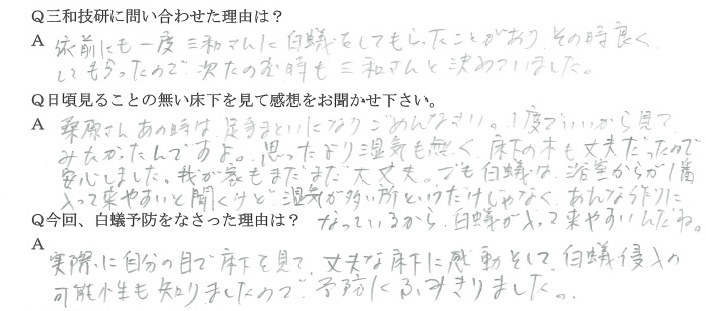 Q三和技研に問い合わせた理由は？
A 依前にも一度三和さんに白蟻をしてもらったことがあり、その時良く
してもらったので、次たのむ時も三和さんと決めていました。
Q日頃見ることの無い床下を見て感想をお聞かせ下さい。
A 桑原さんあの時は、足手まといになりごめんなさい。1度でいいから見て
みたかったんですよ。思ったより湿気も無く、床下の木も丈夫だったので
安心しました。我が家もまだまだ大丈夫。でも白蟻は、浴室からが1番
入って来やすいと聞くけど、湿気が多い所というだけじゃなく、あんな作りに
なっているから、白蟻が入って来やすいんだね。
Q今回、白蟻予防をなさった理由は？
A
実際に自分の目で床下を見て、丈夫な床下に感動そして、白蟻侵入の
可能性も知りましたので、予防にふみきりました。